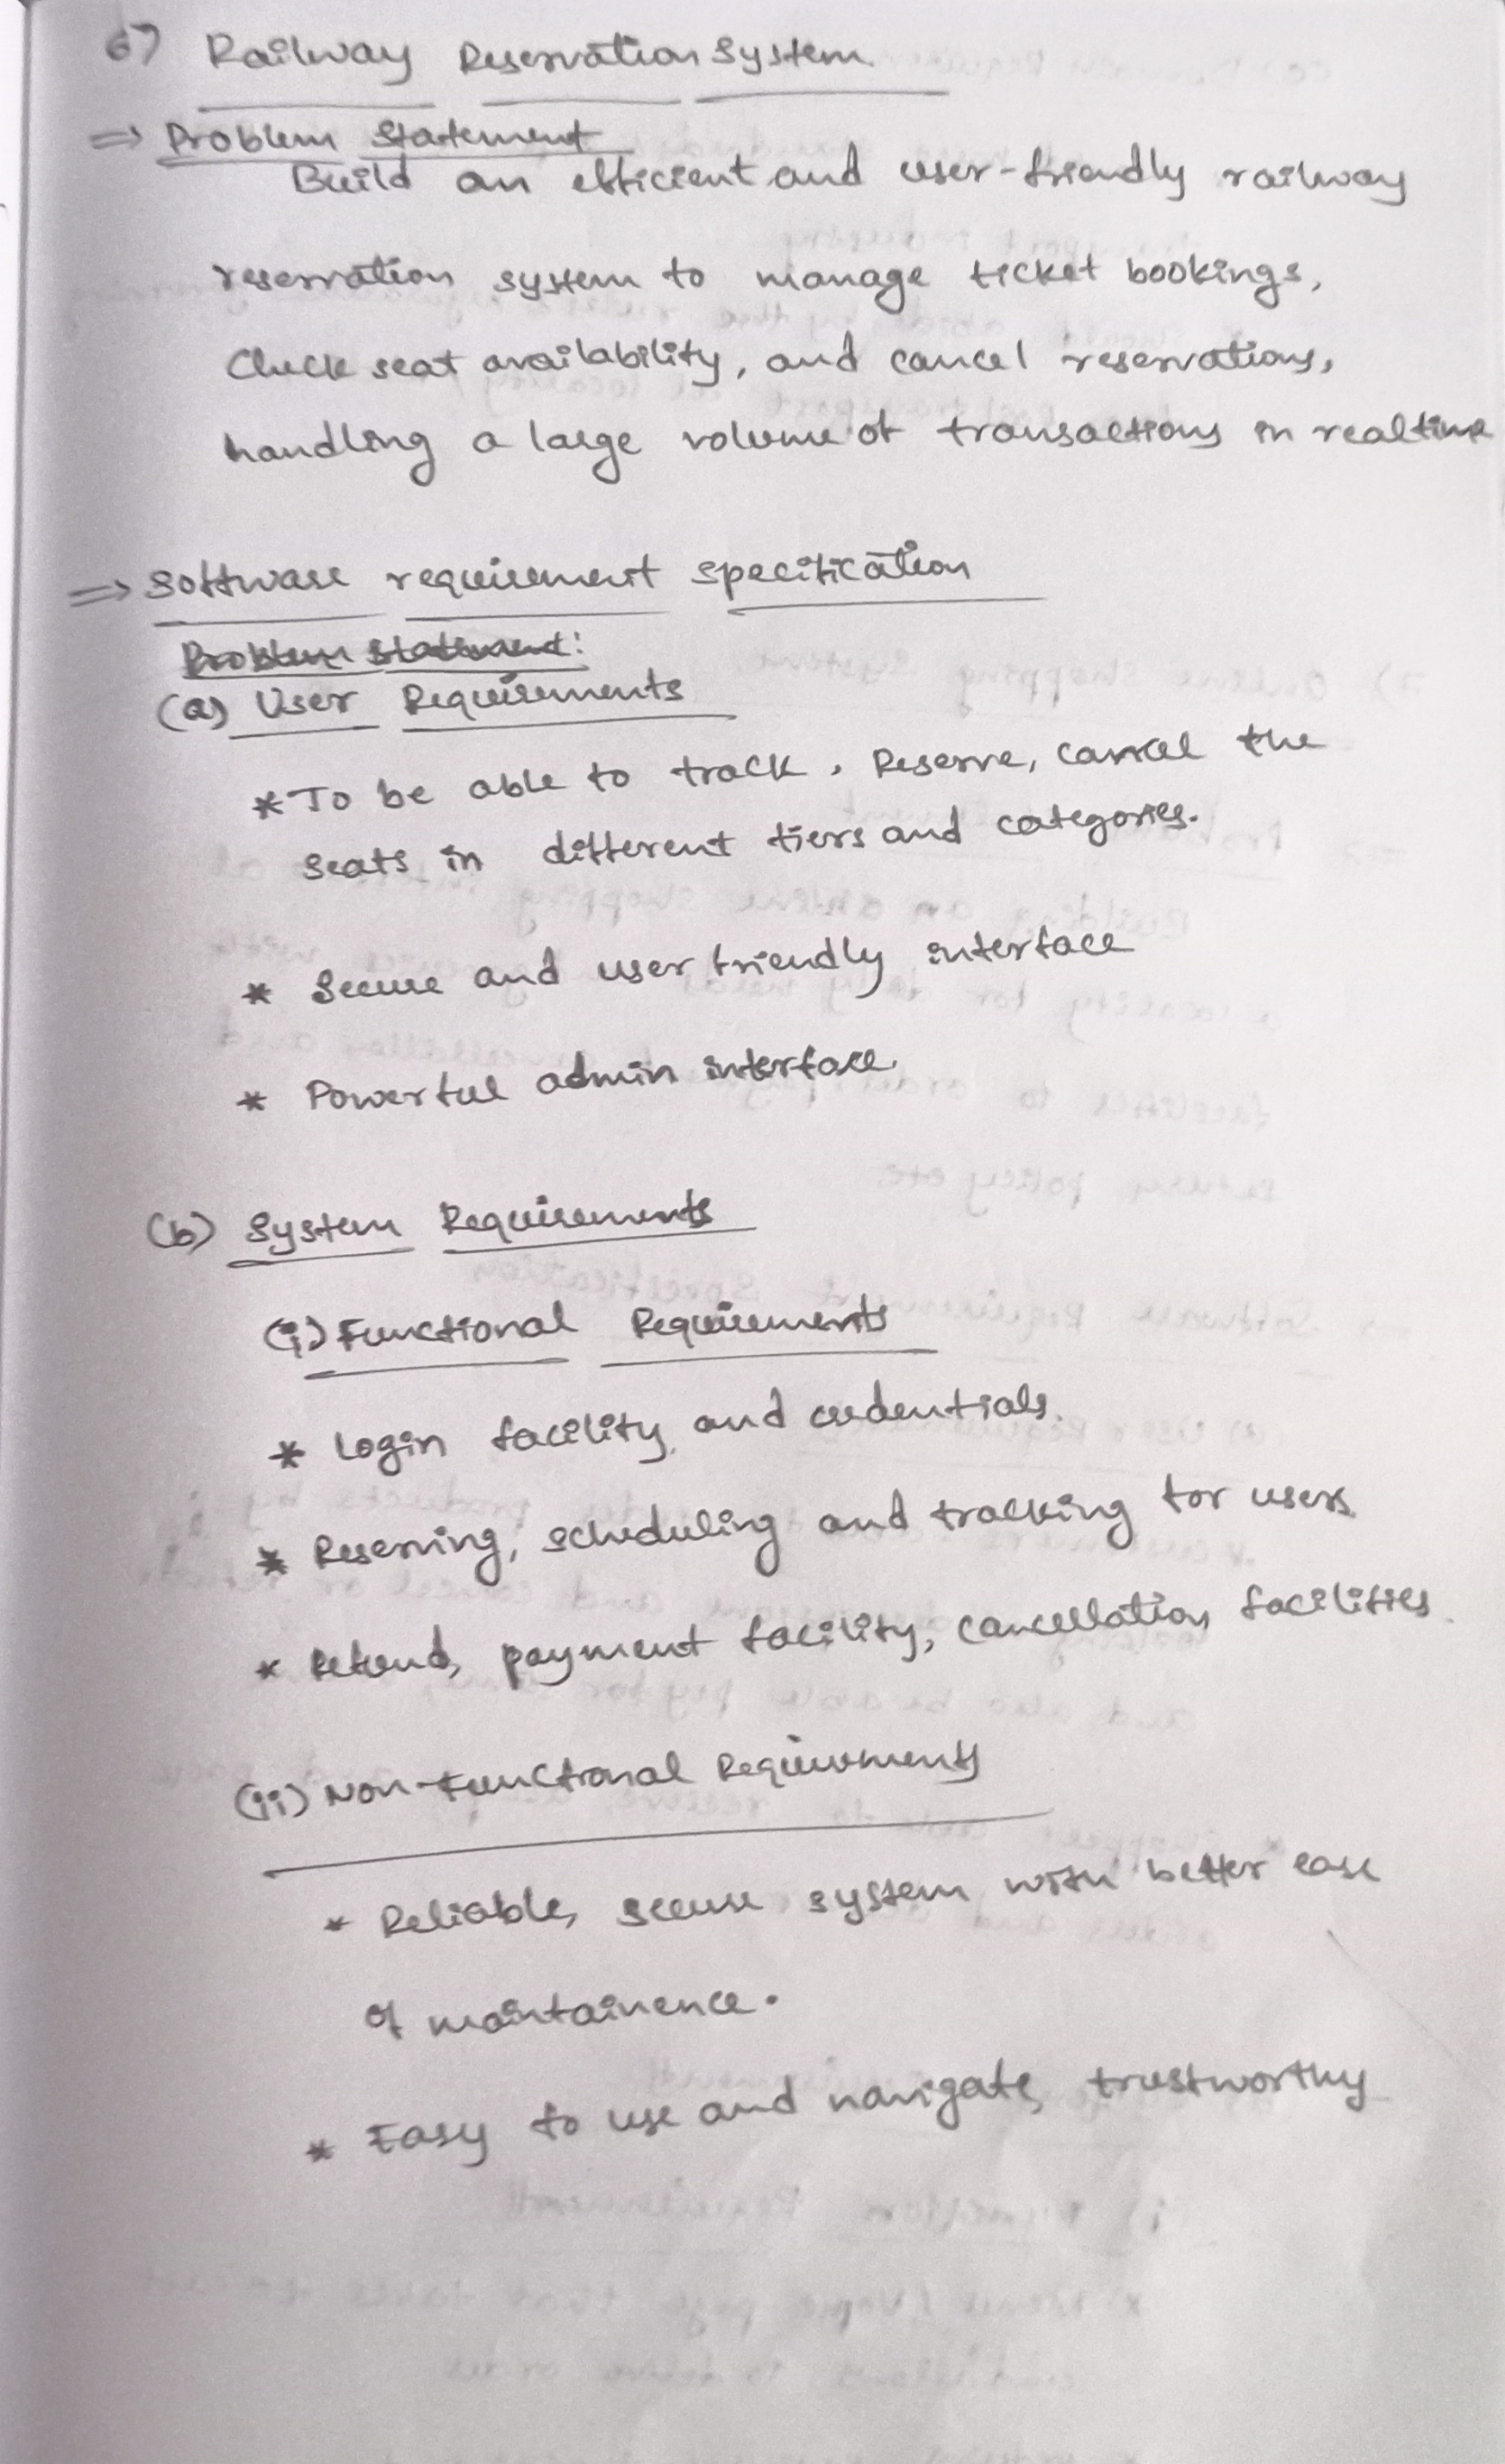 6) Railway Reservation System
⇒ Problem Statement
Build an efficient and user-friendly railway
reservation system to manage ticket bookings,
Check seat availability, and cancel reservations,
handling a large volume of transactions in realtime
⇒ Software requirement specification
Problem Statement:
(a) User Requirements
* To be able to track, Reserve, cancel the
seats in different tiers and categories.
* Secure and user friendly interface
* Powerful admin interface.
(b) System Requirements
(i) Functional Requirements
* Login facility and credentials.
* Reserving, scheduling and tracking for users.
* Refund, payment facility, cancellation facilities.
(ii) Non-Functional Requirements
* Reliable, secure system with better ease
of maintainence.
* Easy to use and navigate, trustworthy